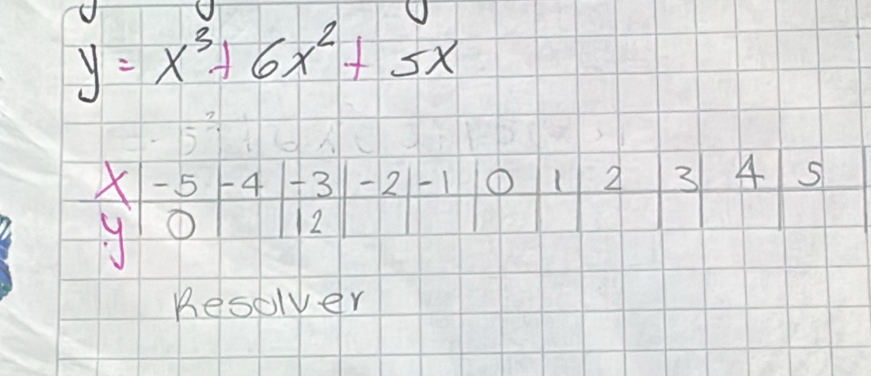 y = x³ + 6x² + 5x
x -5 -4 -3 -2 -1 0 1 2 3 4 5
y 0 12
Resolver